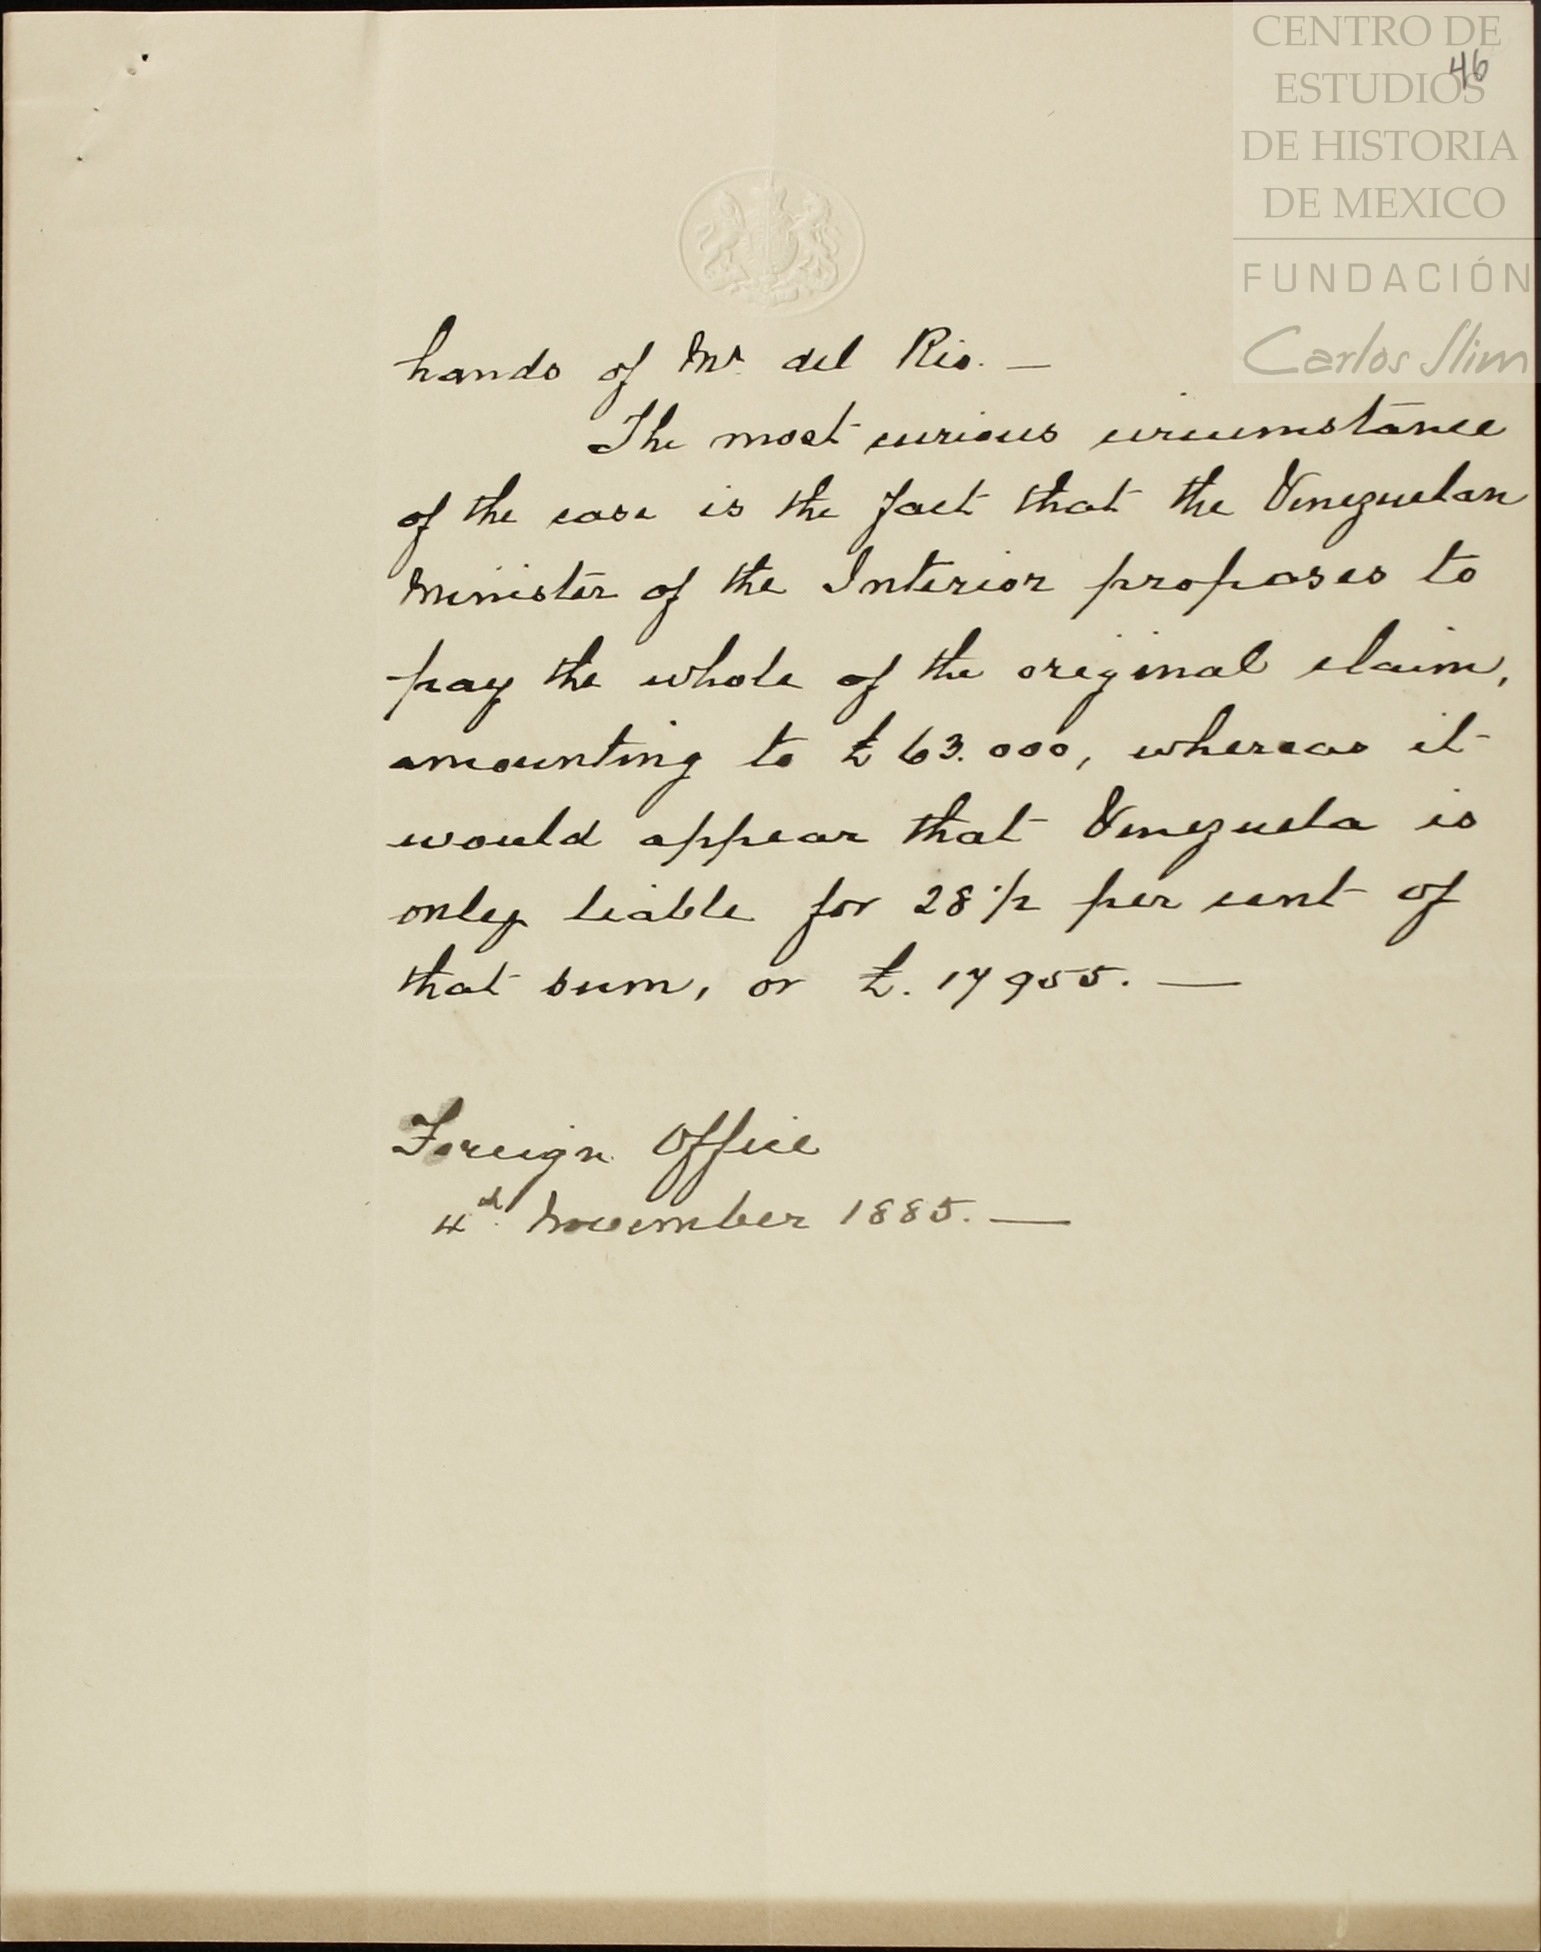 CENTRO DE
46
ESTUDIOS
DE HISTORIA
DE MEXICO
FUNDACIÓN
Carlos Slim
hands of Mr. del Rio. —
The most curious circumstance
of the case is the fact that the Venezuelan
Minister of the Interior proposes to
pay the whole of the original claim,
amounting to £63.000, whereas it
would appear that Venezuela is
only liable for 28 1/2 per cent of
that sum, or £. 17955. —
Foreign Office
4th. November 1885. —